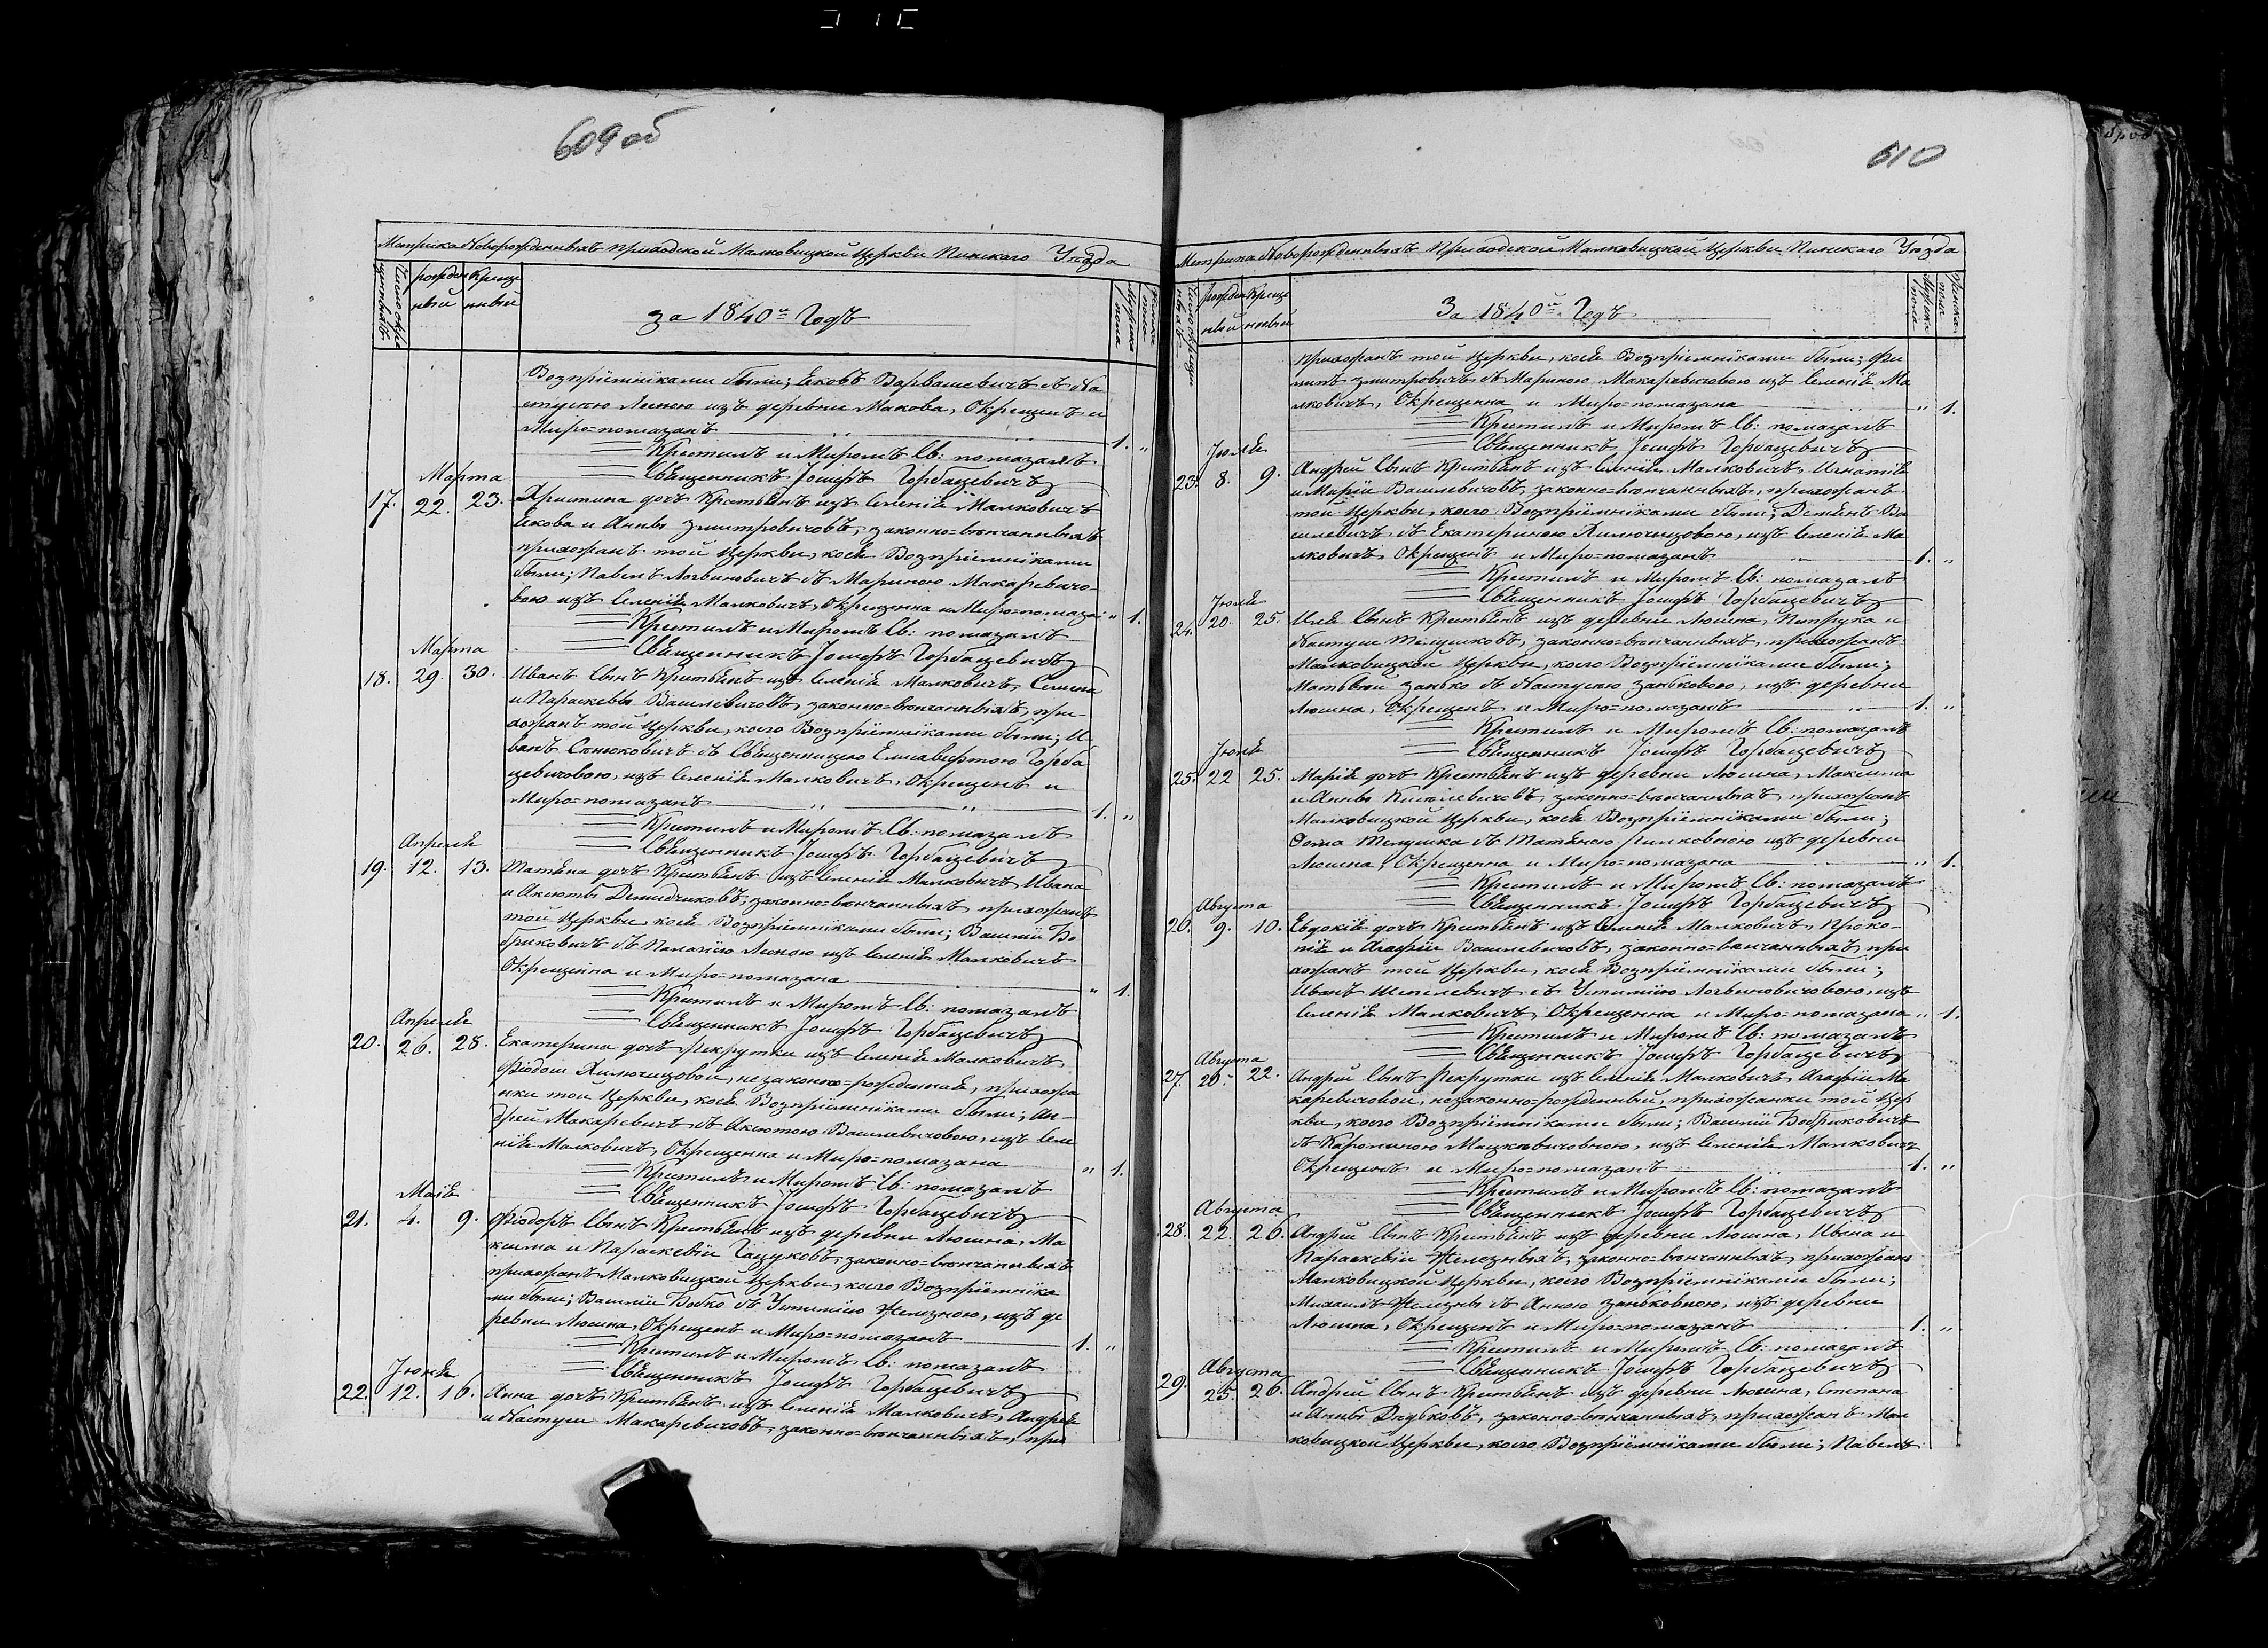 609 об
Метрика Новорожденныхъ приходской Малковицкой Церкви Пинскаго Уезда
Число окре
щенныхъ
рожден
ный
Креще
нный
за 1840й Годъ
Мужска
пола
Женска
пола
Возпріемниками были; Ековъ Варвашевичъ съ На
стусею изъ деревни Макова, Окрещенъ и
Миро=помазанъ 1. "
Крестилъ и Миромъ Св: помазалъ
Священникъ Іосифъ Горбацевичъ
Марта
17. 22. 23. Христина дочь Крестьянъ изъ селенія Малковичъ
Екова и Анны Змитровичовъ, законно=вѣнчанныхъ
прихожанъ той Церкви, коея Возпріемниками
были; Павелъ Логвиновичъ съ Мариною Макаревичо-
вою изъ Селенія Малковичъ, Окрещенна и Миро=помаза " 1.
Крестилъ и Миромъ Св: помазалъ
Священникъ Іосифъ Горбацевичъ
Марта
18. 29. 30. Иванъ Сынъ Крестьянъ изъ Селенія Малковичъ, Семена
и Параскевы Вашлевичовъ, законно=вѣнчанныхъ, при-
хожанъ той Церкви, коего Возпріемниками были; И-
ванъ Сенюковичъ съ Священницею Елисаветою Горба
цевичовою, изъ Селенія Малковичъ, Окрещенъ и
Миро=помазанъ 1. "
Крестилъ и Миромъ Св: помазалъ
Священникъ Іосифъ Горбацевичъ
Апреля
19. 12. 13. Татяна дочь Крестьянъ изъ Селенія Малковичъ, Ивана
и Аксюты Демидчиковъ, законно=вѣнчанныхъ прихожанъ
той Церкви, коея Возпріемниками были; Василій Бо
бриковичъ съ Палагіею изъ Селенія Малковичъ
Окрещенна и Миро=помазана " 1.
Крестилъ и Миромъ Св: помазалъ
Священникъ Іосифъ Горбацевичъ
Апреля
20. 26. 28. Екатерина дочь Рекрутки изъ Селенія Малковичъ
Ѳіодоси Хилючицовой, незаконно=рожденная, прихожа
нки той Церкви, коея Возпріемниками были; Ан-
дрей Макаревичъ съ Аксютою Вашлевичовою, изъ Селе
нія Малковичъ, Окрещенна и Миро=помазана " 1.
Крестилъ и Миромъ Св: помазалъ
Священникъ Іосифъ Горбацевичъ
Маія
21. 4. 9. Ѳіодоръ Сынъ Крестьянъ изъ деревни Люсина, Ма
ксима и Параскевіи Гацуковъ, законно=вѣнчанныхъ
прихожанъ Малковицкой Церкви, коего Возпріемника
ми были; Василій Бобко съ Устиніею Железною, изъ де
ревни Люсина, Окрещенъ и Миро=помазанъ 1. "
Крестилъ и Миромъ Св: помазалъ
Священникъ Іосифъ Горбацевичъ
Іюня
22. 12. 16. Анна дочь Крестьянъ изъ Селенія Малковичъ, Андрея
и Настуси Макаревичовъ, законно=вѣнчанныхъ, при
610
Метрика Новорожденныхъ Приходской Малковицкой Церкви Пинскаго Уезда
Число окрещен
ныхъ
рожден
ный
Креще
нный
За 1840й Годъ
Мужска
пола
Женска
пола
прихожанъ той Церкви, коея Возпріемниками были; Фи
липъ Змитровичъ съ Мариною Макаревичовою изъ Селенія Ма
лковичъ, Окрещенна и Миро=помазана " 1.
Крестилъ и Миромъ Св: помазалъ
Священникъ Іосифъ Горбацевичъ
Іюля
23. 8. 9. Андрей Сынъ Крестьянъ изъ Селенія Малковичъ, Игнатія
и Маріи Вашлевичовъ, законно=вѣнчанныхъ, прихожанъ
той Церкви, коего Возпріемниками были; Демянъ Ва
шлевичъ съ Екатериною Хилючицовою, изъ Селенія Ма
лковичъ Окрещенъ и Миро=помазанъ 1. "
Крестилъ и Миромъ Св: помазалъ
Священникъ Іосифъ Горбацевичъ
24. 20. 25. Илія Сынъ Крестьянъ изъ деревни Люсина, Петрука и
Настуси Телушковъ, законно=вѣнчанныхъ, прихожанъ
Малковицкой Церкви, коего Возпріемниками были;
Матьвей Занько съ Настусею Заньковою, изъ деревни
Люсина, Окрещенъ и Миро=помазанъ 1. "
Крестилъ и Миромъ Св: помазалъ
Священникъ Іосифъ Горбацевичъ
25. 22 25. Марія дочь Крестьянъ изъ деревни Люсина, Максима
и Анны законно=вѣнчанныхъ, прихожанъ
Малковицкой Церкви, коея Возпріемниками были;
Ѳома Телушка съ Татяною изъ деревни
Люсина, Окрещенна и Миро=помазана " 1.
Крестилъ и Миромъ Св: помазалъ
Священникъ Іосифъ Горбацевичъ
Августа
26. 9. 10. Евдокія дочь Крестьянъ изъ Селенія Малковичъ, Проко-
пія и Агафіи Вашлевичовъ, законно=вѣнчанныхъ, при
хожанъ той Церкви, коея Возпріемниками были;
Иванъ Шепелевичъ съ Устиніею Логвиновичовою, изъ
Селенія Малковичъ, Окрещенна и Миро=помазана " 1.
Крестилъ и Миромъ Св: помазалъ
Священникъ Іосифъ Горбацевичъ
Августа
27. 20. 22. Андрей Сынъ Рекрутки изъ Селенія Малковичъ Агафіи Ма
каревичовой, незаконно=рожденный, прихожанки той Цер
кви, коего Возпріемниками были; Василій Бобриковичъ
съ Каролиною Мицкевичовною, изъ Селенія Малковичъ
Окрещенъ и Миро=помазанъ 1. "
Крестилъ и Миромъ Св: помазалъ
Священникъ Іосифъ Горбацевичъ
Августа
28. 22. 26. Андрей Сынъ Крестьянъ изъ деревни Люсина, Ивана и
Параскевіи Железныхъ, законно=вѣнчанныхъ, прихожанъ
Малковицкой Церкви, коего Возпріемниками были;
Михаилъ Железны съ Анною Заньковною, изъ деревни
Люсина, Окрещенъ и Миро=помазанъ 1. "
Крестилъ и Миромъ Св: помазалъ
Священникъ Іосифъ Горбацевичъ
Августа
29. 25. 26. Андрей Сынъ Крестьянъ изъ деревни Люсина, Степана
и Анны Дзубковъ, законно=вѣнчанныхъ, прихожанъ Мал
ковицкой Церкви, коего Возпріемниками были; Павелъ